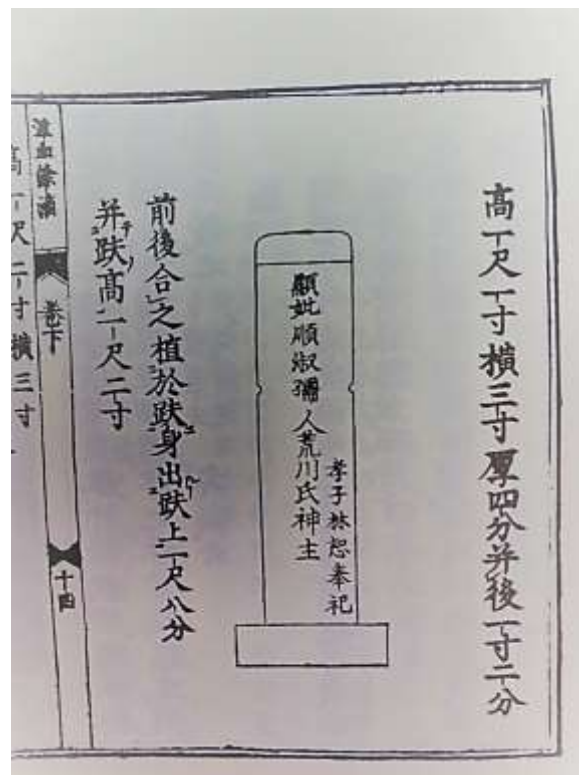 高一尺一寸横三寸厚四分并後一寸二分
孝子林恕奉祀
顯妣順淑孺人荒川氏神主
前後合之植於趺身出趺上一尺八分
并趺高一尺二寸
泣血餘滴
卷下
十四
高一尺二寸横三寸